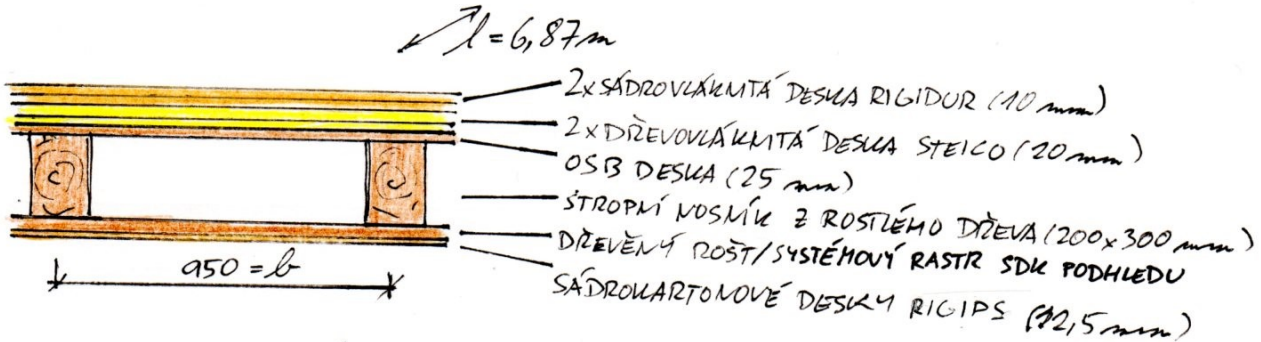 l=6,87m
2xSÁDROVLÁKNITÁ DESKA RIGIDUR (10 mm)
2xDŘEVOVLÁKNITÁ DESKA STEICO (20 mm)
OSB DESKA (25 mm)
STROPNÍ NOSNÍK Z ROSTLÉHO DŘEVA (200x300 mm)
DŘEVĚNÝ ROŠT/SYSTÉMOVÝ RASTR SDK PODHLEDU
SÁDROKARTONOVÉ DESKY RIGIPS (12,5mm)
950=b